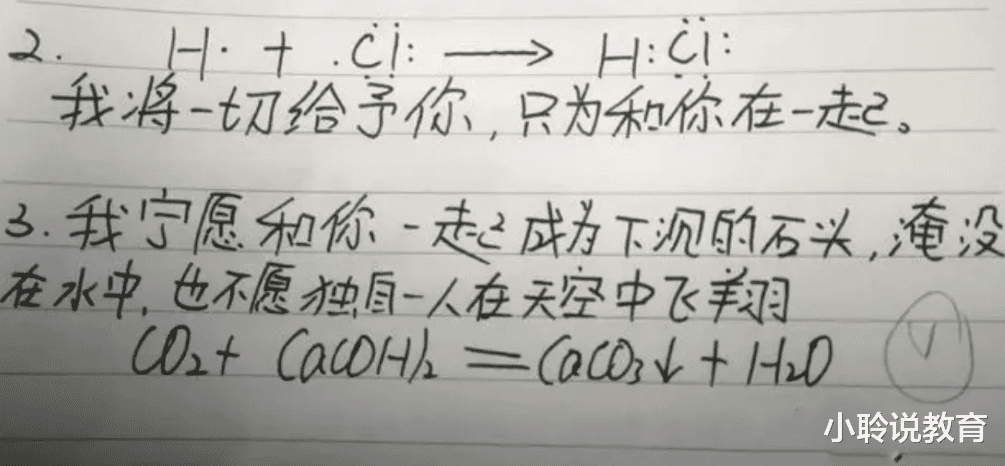 2. H· + ·C̈l: ⟶ H:C̈l:
我将一切给予你,只为和你在一起。
3. 我宁愿和你一起成为下沉的石头,淹没
在水中,也不愿独自一人在天空中飞翔
CO₂ + Ca(OH)₂ = CaCO₃↓ + H₂O
小聆说教育